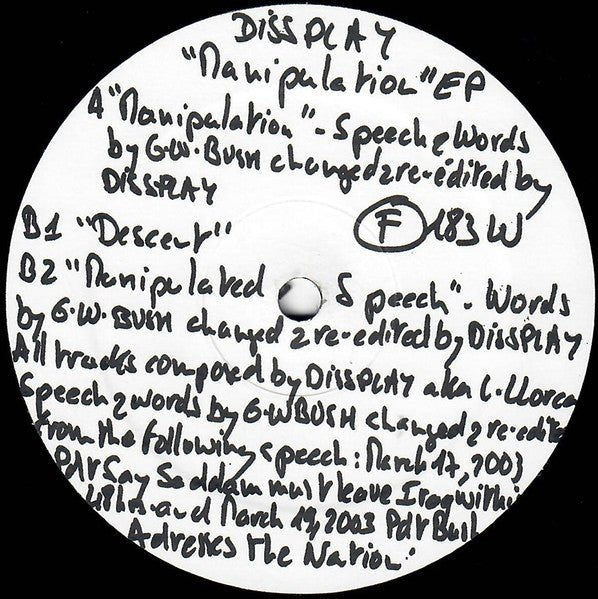 DISSPLAY
"Manipulation" EP
A "Manipulation" - Speech & Words
by G.W. BUSH changed & re-edited by
DISSPLAY
B1 "Descent" F 183 W
B2 "Manipulated Speech" - Words
by G.W. BUSH changed & re-edited by DISSPLAY
All tracks composed by DISSPLAY aka L. LLorca
Speech & words by G.W BUSH changed & re-edited
from the following speech: March 17, 2003
PdT Say Saddam must leave Iraq within
48h. and March 19, 2003 PdT Bush
Adresses the Nation.